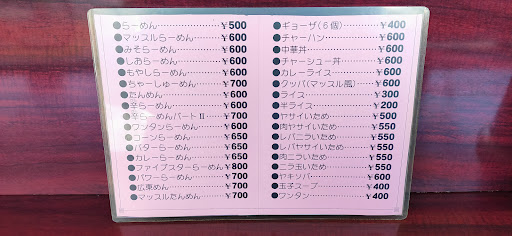 ●らーめん………………¥500
●マッスルらーめん………¥600
●みそらーめん……………¥600
●しおらーめん……………¥600
●もやしらーめん…………¥600
●ちゃーしゅーめん………¥700
●たんめん…………………¥600
●辛らーめん………………¥600
●辛らーめんパートⅡ……¥700
●ワンタンらーめん………¥600
●コーンらーめん…………¥650
●バターらーめん…………¥650
●カレーらーめん…………¥650
●ファイブスターらーめん…¥800
●パワーらーめん…………¥700
●広東めん…………………¥700
●マッスルたんめん………¥700
●ギョーザ(6個)…………¥400
●チャーハン………………¥600
●中華丼……………………¥600
●チャーシュー丼…………¥600
●カレーライス……………¥600
●クッパ(マッスル風)……¥600
●ライス……………………¥300
●半ライス…………………¥200
●ヤサイいため……………¥500
●肉ヤサイいため…………¥550
●レバニラいため…………¥550
●レバヤサイいため………¥550
●肉ニラいため……………¥550
●ニラ玉いため……………¥550
●ヤキソバ…………………¥600
●玉子スープ………………¥400
●ワンタン…………………¥400